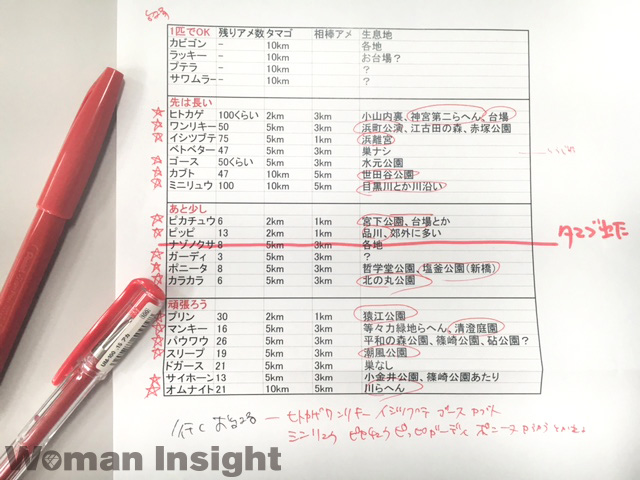 1匹でOK 残りアメ数 タマゴ 相棒アメ 生息地
カビゴン － 10km 各地
ラッキー － 10km お台場？
プテラ － 10km ？
サワムラー － 10km ？
先は長い
ヒトカゲ 100くらい 2km 3km 小山内裏、神宮第二らへん、台場
ワンリキー 50 5km 3km 浜町公演、江古田の森、赤塚公園
イシツブテ 75 5km 1km 浜離宮
ベトベター 47 5km 3km 巣ナシ
ゴース 50くらい 5km 3km 水元公園
カブト 47 10km 5km 世田谷公園
ミニリュウ 100 10km 5km 目黒川とか川沿い
あと少し
ピカチュウ 6 2km 1km 宮下公園、台場とか
ピッピ 13 2km 1km 品川、郊外に多い
ナゾノクサ 8 5km 3km 各地
タマゴ生まれた
ガーディ 3 5km 3km ？
ポニータ 8 5km 3km 哲学堂公園、塩釜公園（新橋）
カラカラ 6 5km 3km 北の丸公園
頑張ろう
プリン 30 2km 1km 猿江公園
マンキー 16 5km 3km 等々力緑地らへん、清澄庭園
パウワウ 26 5km 3km 平和の森公園、篠崎公園、砧公園？
スリープ 19 5km 3km 潮風公園
ドガース 21 5km 3km 巣なし
サイホーン 13 5km 3km 小金井公園、篠崎公園あたり
オムナイト 21 10km 5km 川らへん
ヒトカゲ ワンリキー イシツブテ ゴース カブト
ミニリュウ ピカチュウ ピッピ ガーディ ポニータ
Woman Insight